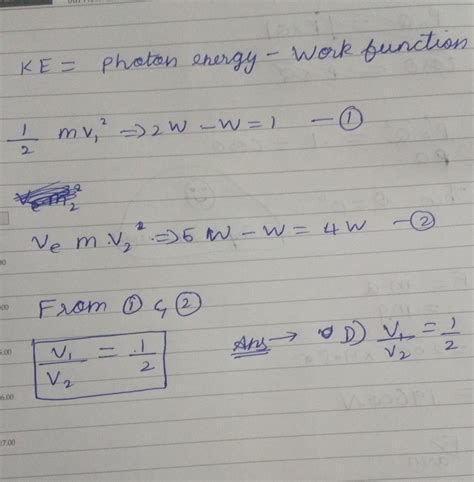 KE = Photon energy - Work function
1/2 mv₁² ⇒ 2W - W = 1 — ①
Ve m v₂² ⇒ 5W - W = 4W — ②
From ① & ②
V₁/V₂ = 1/2
Ans → D) V₁/V₂ = 1/2